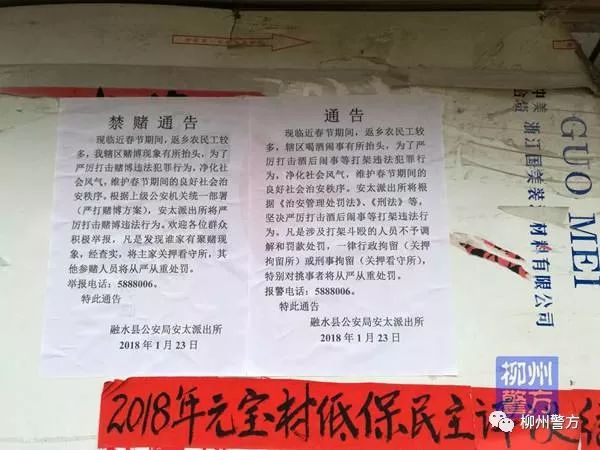 禁赌通告
现临近春节期间，返乡农民工较
多，我辖区赌博现象有所抬头，为了
严厉打击赌博违法犯罪行为，净化社
会风气，维护春节期间的良好社会治
安秩序。根据上级公安机关统一部署
（严打赌博方案），安太派出所将严
厉打击赌博违法行为。欢迎各位群众
积极举报，凡是发现谁家有聚赌现
象，经查实，将主家关押看守所，其
他参赌人员将从严从重处罚。
举报电话：5888006。
特此通告
融水县公安局安太派出所
2018年1月23日
通告
现临近春节期间，返乡农民工较
多，辖区喝酒闹事有所抬头，为了
严厉打击酒后闹事等打架违法犯罪
行为，净化社会风气，维护春节期间
的良好社会治安秩序。安太派出所将根
据《治安管理处罚法》、《刑法》等，
坚决严厉打击酒后闹事等打架违法行
为。凡是涉及打架斗殴的人员不予调
解和罚款处罚，一律行政拘留（关押
拘留所）或刑事拘留（关押看守所），
特别对挑事者将从严从重处罚。
报警电话：5888006。
特此通告
融水县公安局安太派出所
2018年1月23日
GUO MEI
中美合资
浙江国美装
材料有限公司
2018年元宝村低保民主评
柳州
警方
柳州警方